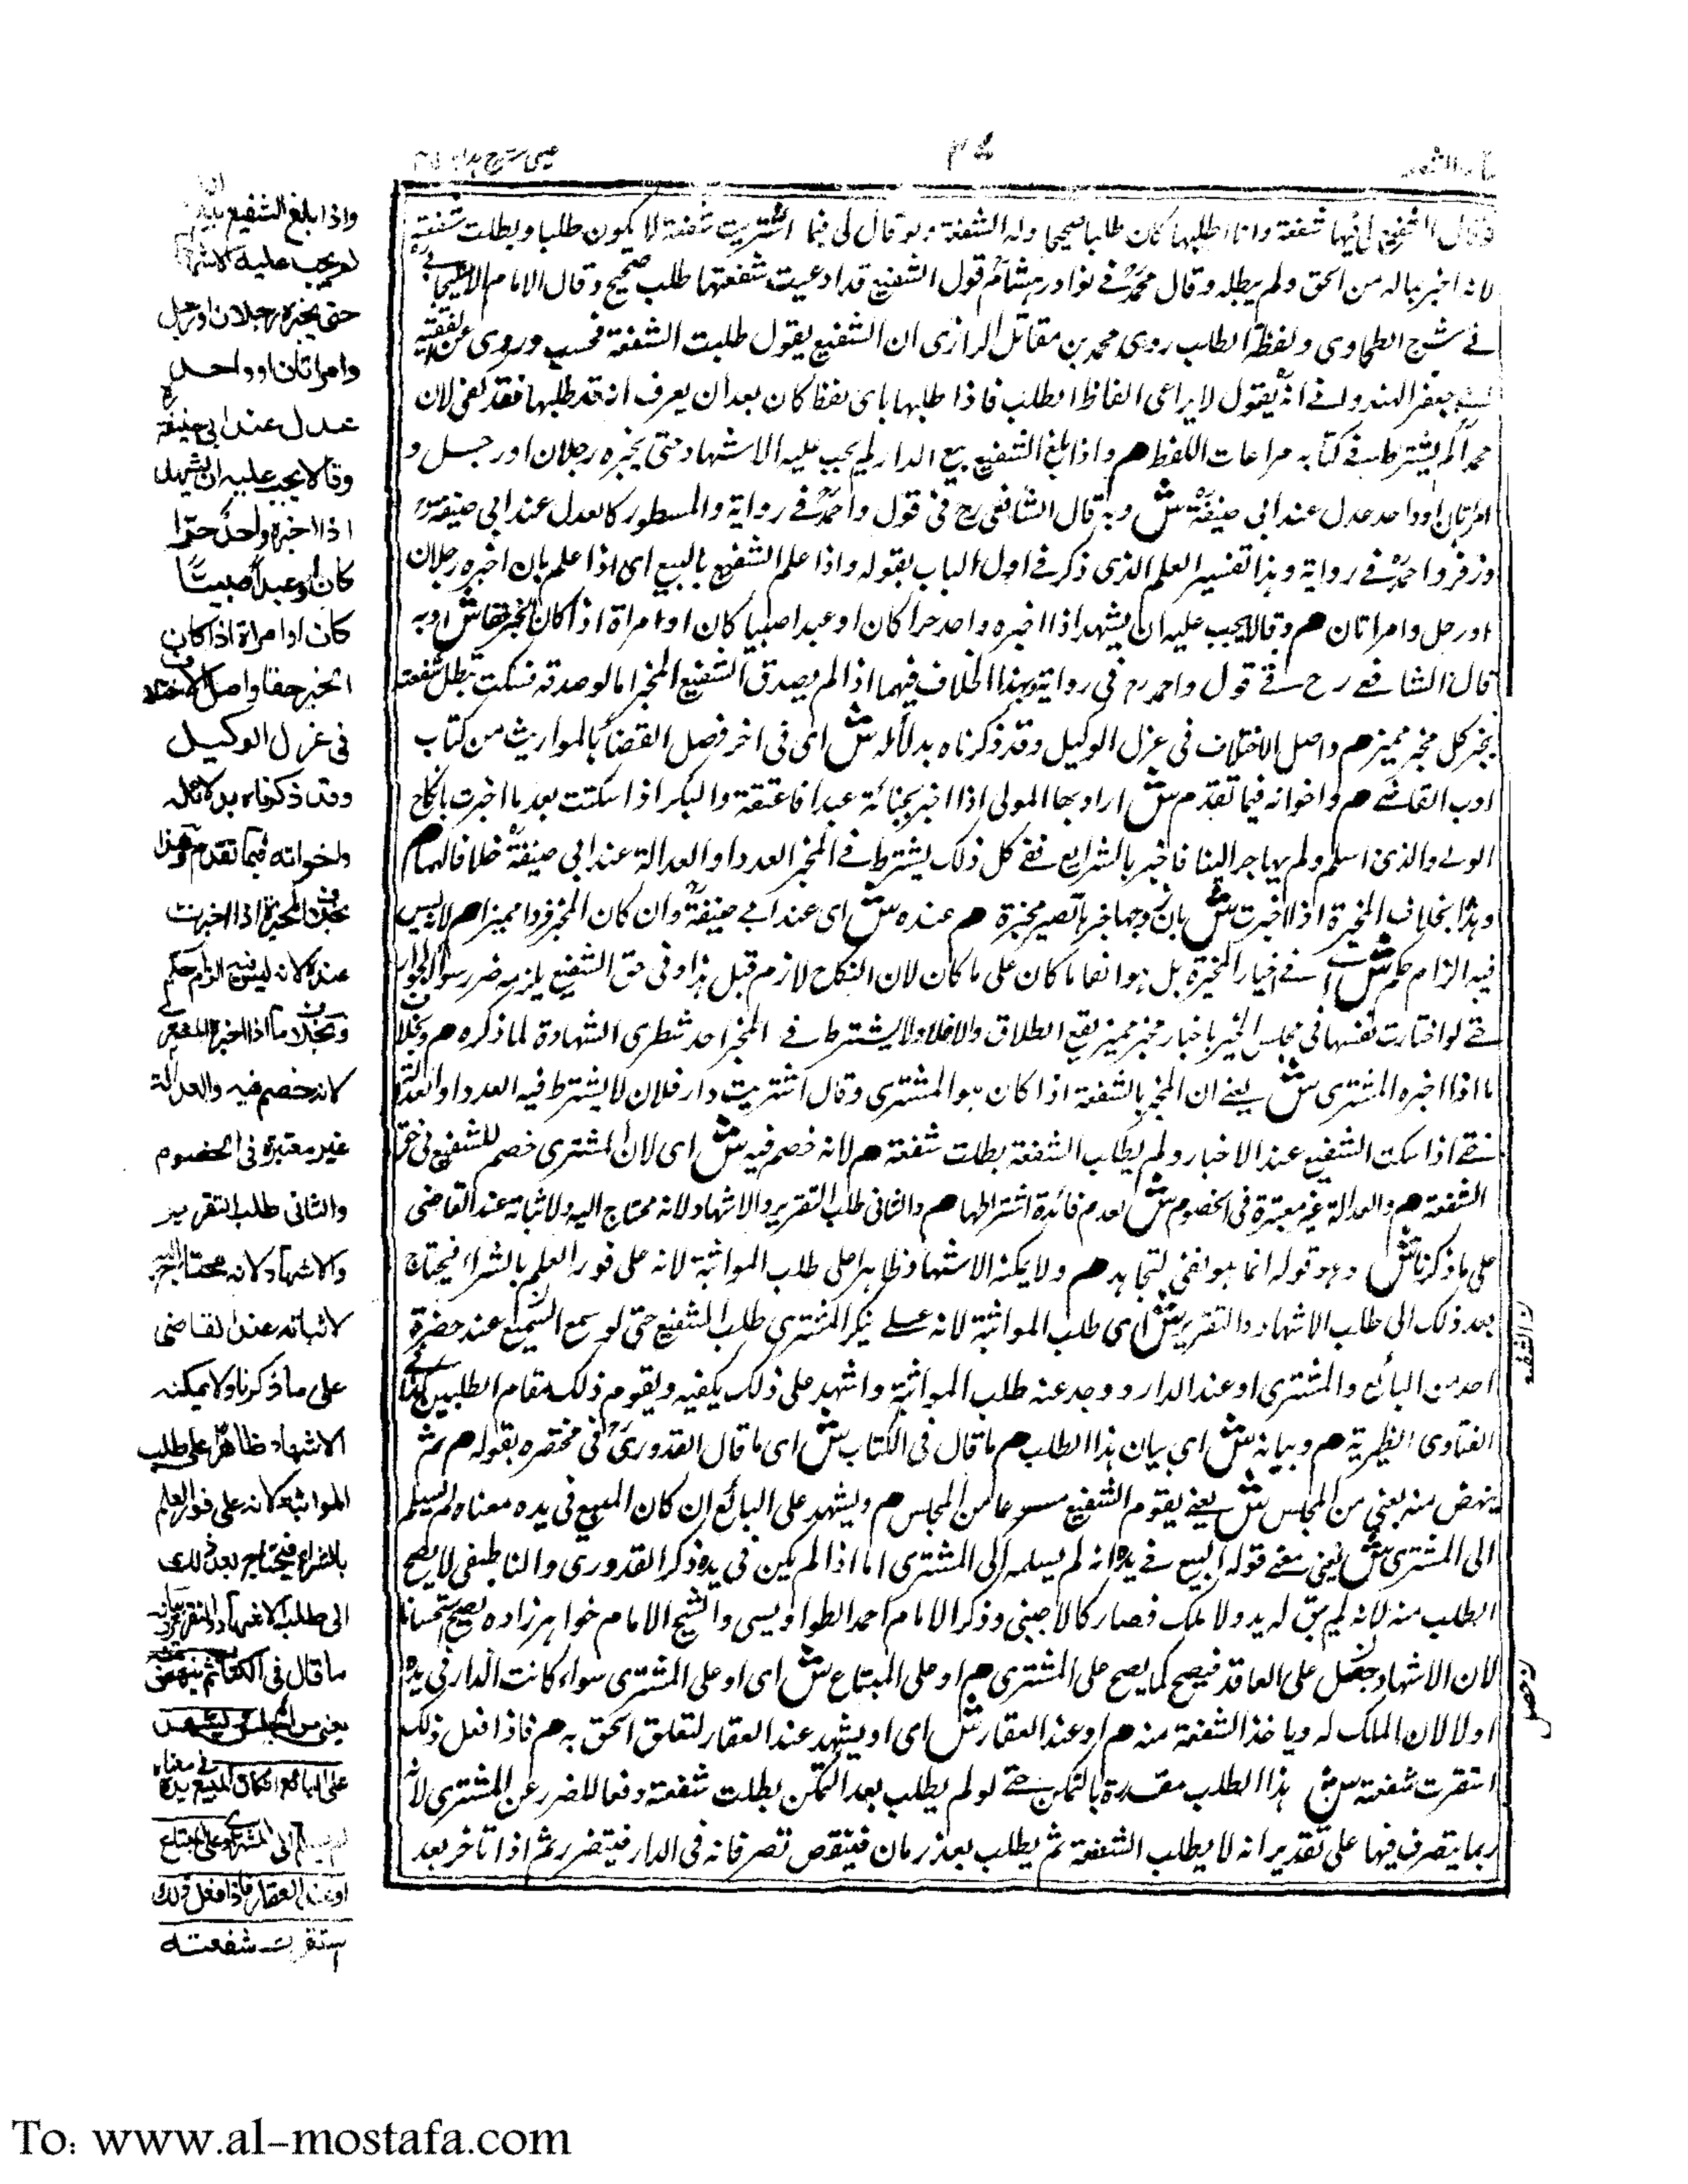 عینی شرح ہدایہ
فقال الشفیع لی فیها شفعة وانا اطلبها کان طلبا صحیحا وله الشفعة ولو قال لی فیما اشتریت شفعة لا یکون طلبا وبطلت شفعته
لانه اخبر بماله من الحق ولم یطلبه وقال محمدؒ فی نوادر هشامؒ قول الشفیع قد ادعیت شفعتها طلب صحیح وقال الامام الاسبیجابی
فی شرح الطحاوی ولفظة الطلب روی محمد بن مقاتل الرازی ان الشفیع یقول طلبت الشفعة فحسب وروی عن الفقیه
جعفر الهندوانی انه یقول لا یراعی الفاظ الطلب فاذا طلبها بای لفظ کان بعد ان یعرف انه قد طلبها فقد کفی لان
محمدا لم یشترط فی کتابه مراعات اللفظ هم واذا بلغ الشفیع بیع الدار لم یجب علیه الاشهاد حتی یخبره رجلان او رجل و
امراتان او واحد عدل عند ابی حنیفةؒ ش وبه قال الشافعی رح فی قول واحمدؒ فی روایة والمسطور کالعدل عند ابی حنیفةؒ
وزفر واحمدؒ فی روایة وهذا تفسیر العلم الذی ذکر فی اول الباب بقوله واذا علم الشفیع بالبیع ای اذا علم بان اخبره رجلان
او رجل وامراتان هم وقالا یجب علیه ان یشهد اذا اخبره واحد حرا کان او عبدا صبیا کان او امراة اذا کان الخبر حقا ش وبه
قال الشافعی رح فی قول واحمد رح فی روایة وهذا الخلاف فیهما اذا لم یصدق الشفیع المخبر اما لو صدقه فسکت تبطل شفعته
بخبر کل مخبر ممیز هم واصل الاختلاف فی عزل الوکیل وقد ذکرناه بدلائله ش ای فی اخر فصل القضاء بالمواریث من کتاب
ادب القاضی هم واخواته فیما تقدم ش اراد بها المولی اذا اخبر بجنایة عبده فاعتقه والبکر اذا سکتت بعد ما اخبرت بانکاح
الولی والذی اسلم ولم یهاجر الینا فاخبر بالشرایع ففی کل ذلک یشترط فی المخبر العدد او العدالة عند ابی حنیفةؒ خلافا لهما هم
وهذا بخلاف المخیرة اذا اخبرت ش بان زوجها خیرها تصیر مخیرة هم عنده ش ای عند ابی حنیفةؒ وان کان المخبر فردا ممیزا هم لانه لیس
فیه الزام حکم ش ای فی اخبار المخیرة بل هو ابقاء ما کان علی ما کان لان النکاح لازم قبل هذا وفی حق الشفیع یلزمه ضرر سوء الجوار
حتی لو اختارت نفسها فی مجلس الخبر باخبار مخبر ممیز یقع الطلاق والا فلا ولا یشترط فی المخبر احد شطری الشهادة لما ذکره هم وبخلاف
ما اذا اخبره المشتری ش یعنی ان المخبر بالشفعة اذا کان هو المشتری وقال اشتریت دار فلان لا یشترط فیه العدد او العدالة
حتی اذا سکت الشفیع عند الاخبار ولم یطلب الشفعة بطلت شفعته هم لانه خصم فیه ش ای لان المشتری خصم للشفیع فی حق
الشفعة هم والعدالة غیر معتبرة فی الخصوم ش لعدم فائدة اشتراطها هم والثانی طلب التقریر والاشهاد لانه محتاج الیه لاثباته عند القاضی
علی ما ذکرنا ش وهو قوله انما هو لنفی التجاحد هم ولا یمکنه الاشهاد ظاهرا علی طلب المواثبة لانه علی فور العلم بالشراء فیحتاج
بعد ذلک الی طلب الاشهاد والتقریر ش ای طلب المواثبة لانه عسی ینکر المشتری طلب الشفیع حتی لو سمع الشفیع عند حضرة
احد من البائع والمشتری او عند الدار ووجد عنه طلب المواثبة واشهد علی ذلک یکفیه ویقوم ذلک مقام الطلبین کذا فی
الفتاوی الظهیریة هم وبیانه ش ای بیان هذا الطلب هم ما قال فی الکتاب ش ای ما قال القدوریؒ فی مختصره بقوله هم ثم
ینهض منه یعنی من المجلس ش یعنی یقوم الشفیع مسرعا من المجلس هم ویشهد علی البائع ان کان المبیع فی یده معناه لم یسلم
الی المشتری ش یعنی معنی قوله المبیع فی یده انه لم یسلمه الی المشتری اما اذا لم یکن فی یده ذکر القدوری والناطفی لا یصح
الطلب منه لانه لم یبق له ید ولا ملک فصار کالاجنبی وذکر الامام احمد الطواویسی والشیخ الامام خواهر زاده یصح استحسانا
لان الاشهاد حصل علی العاقد فیصح کما یصح علی المشتری هم او علی المبتاع ش ای او علی المشتری سواء کانت الدار فی یده
او لا لان الملک له ویاخذ الشفعة منه هم او عند العقار ش ای او یشهد عند العقار لتعلق الحق به هم فاذا فعل ذلک
استقرت شفعته ش هذا الطلب مقدرة بالتمکن حتی لو لم یطلب بعد التمکن بطلت شفعته دفعا للضرر عن المشتری لانه
ربما یتصرف فیها علی تقدیر انه لا یطلب الشفعة ثم یطلب بعد زمان فینقص تصرفاته فی الدار فیتضرر ثم اذا تاخر بعد
واذا بلغ الشفیع بیع
لم یجب علیه الاشهاد
حتی یخبره رجلان او رجل
وامراتان او واحد
عدل عند ابی حنیفة رح
وقالا یجب علیه ان یشهد
اذا اخبره واحد حرا
کان او عبدا صبیا
کان او امراة اذا کان
الخبر حقا واصل الاختلاف
فی عزل الوکیل
وقد ذکرناه بدلائله
واخواته فیما تقدم وهذا
بخلاف المخیرة اذا اخبرت
عنده لانه لیس فیه الزام حکم
وبخلاف ما اذا اخبره المشتری
لانه خصم فیه والعدالة
غیر معتبرة فی الخصوم
والثانی طلب التقریر
والاشهاد لانه محتاج الیه
لاثباته عند القاضی
علی ما ذکرنا ولا یمکنه
الاشهاد ظاهرا علی طلب
المواثبة لانه علی فور العلم
بالشراء فیحتاج بعد ذلک
الی طلب الاشهاد والتقریر وبیانه
ما قال فی الکتاب ثم ینهض منه
یعنی من المجلس ویشهد
علی البائع ان کان المبیع فی یده معناه
لم یسلم الی المشتری او علی المبتاع
او عند العقار فاذا فعل ذلک
استقرت شفعته
To: www.al-mostafa.com